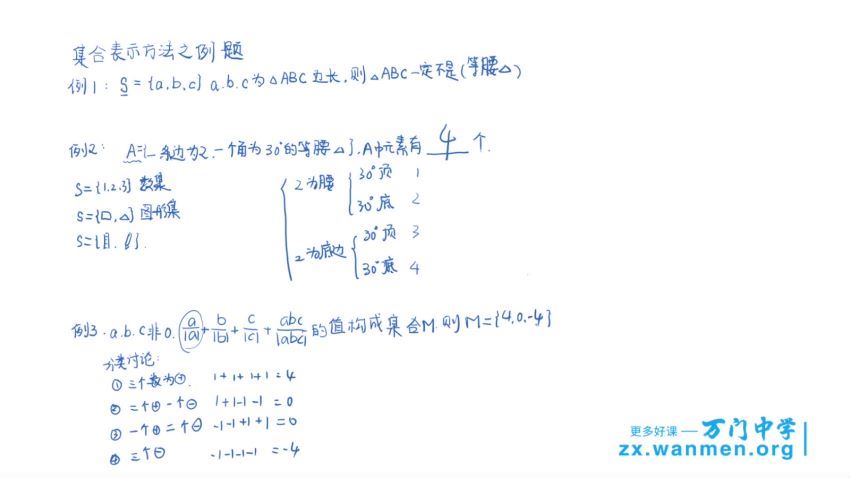 集合表示方法之例题
例1: S={a,b,c} a.b.c为△ABC边长,则△ABC一定不是(等腰△)
例2: A={一条边为2,一个角为30°的等腰△},A中元素有 4 个.
S={1,2,3} 数集
S={□,△} 图形集
S={
2为腰 30°顶 1
30°底 2
2为底边 30°顶 3
30°底 4
例3. a.b.c非0. a/|a|+b/|b|+c/|c|+abc/|abc|的值构成集合M.则M={4,0,-4}
分类讨论:
① 三个数为⊕. 1+1+1+1=4
② 二个⊕一个⊖ 1+1-1-1=0
③ 一个⊕二个⊖ -1-1+1+1=0
④ 三个⊖ -1-1-1-1=-4
更多好课 — 万门中学
zx.wanmen.org